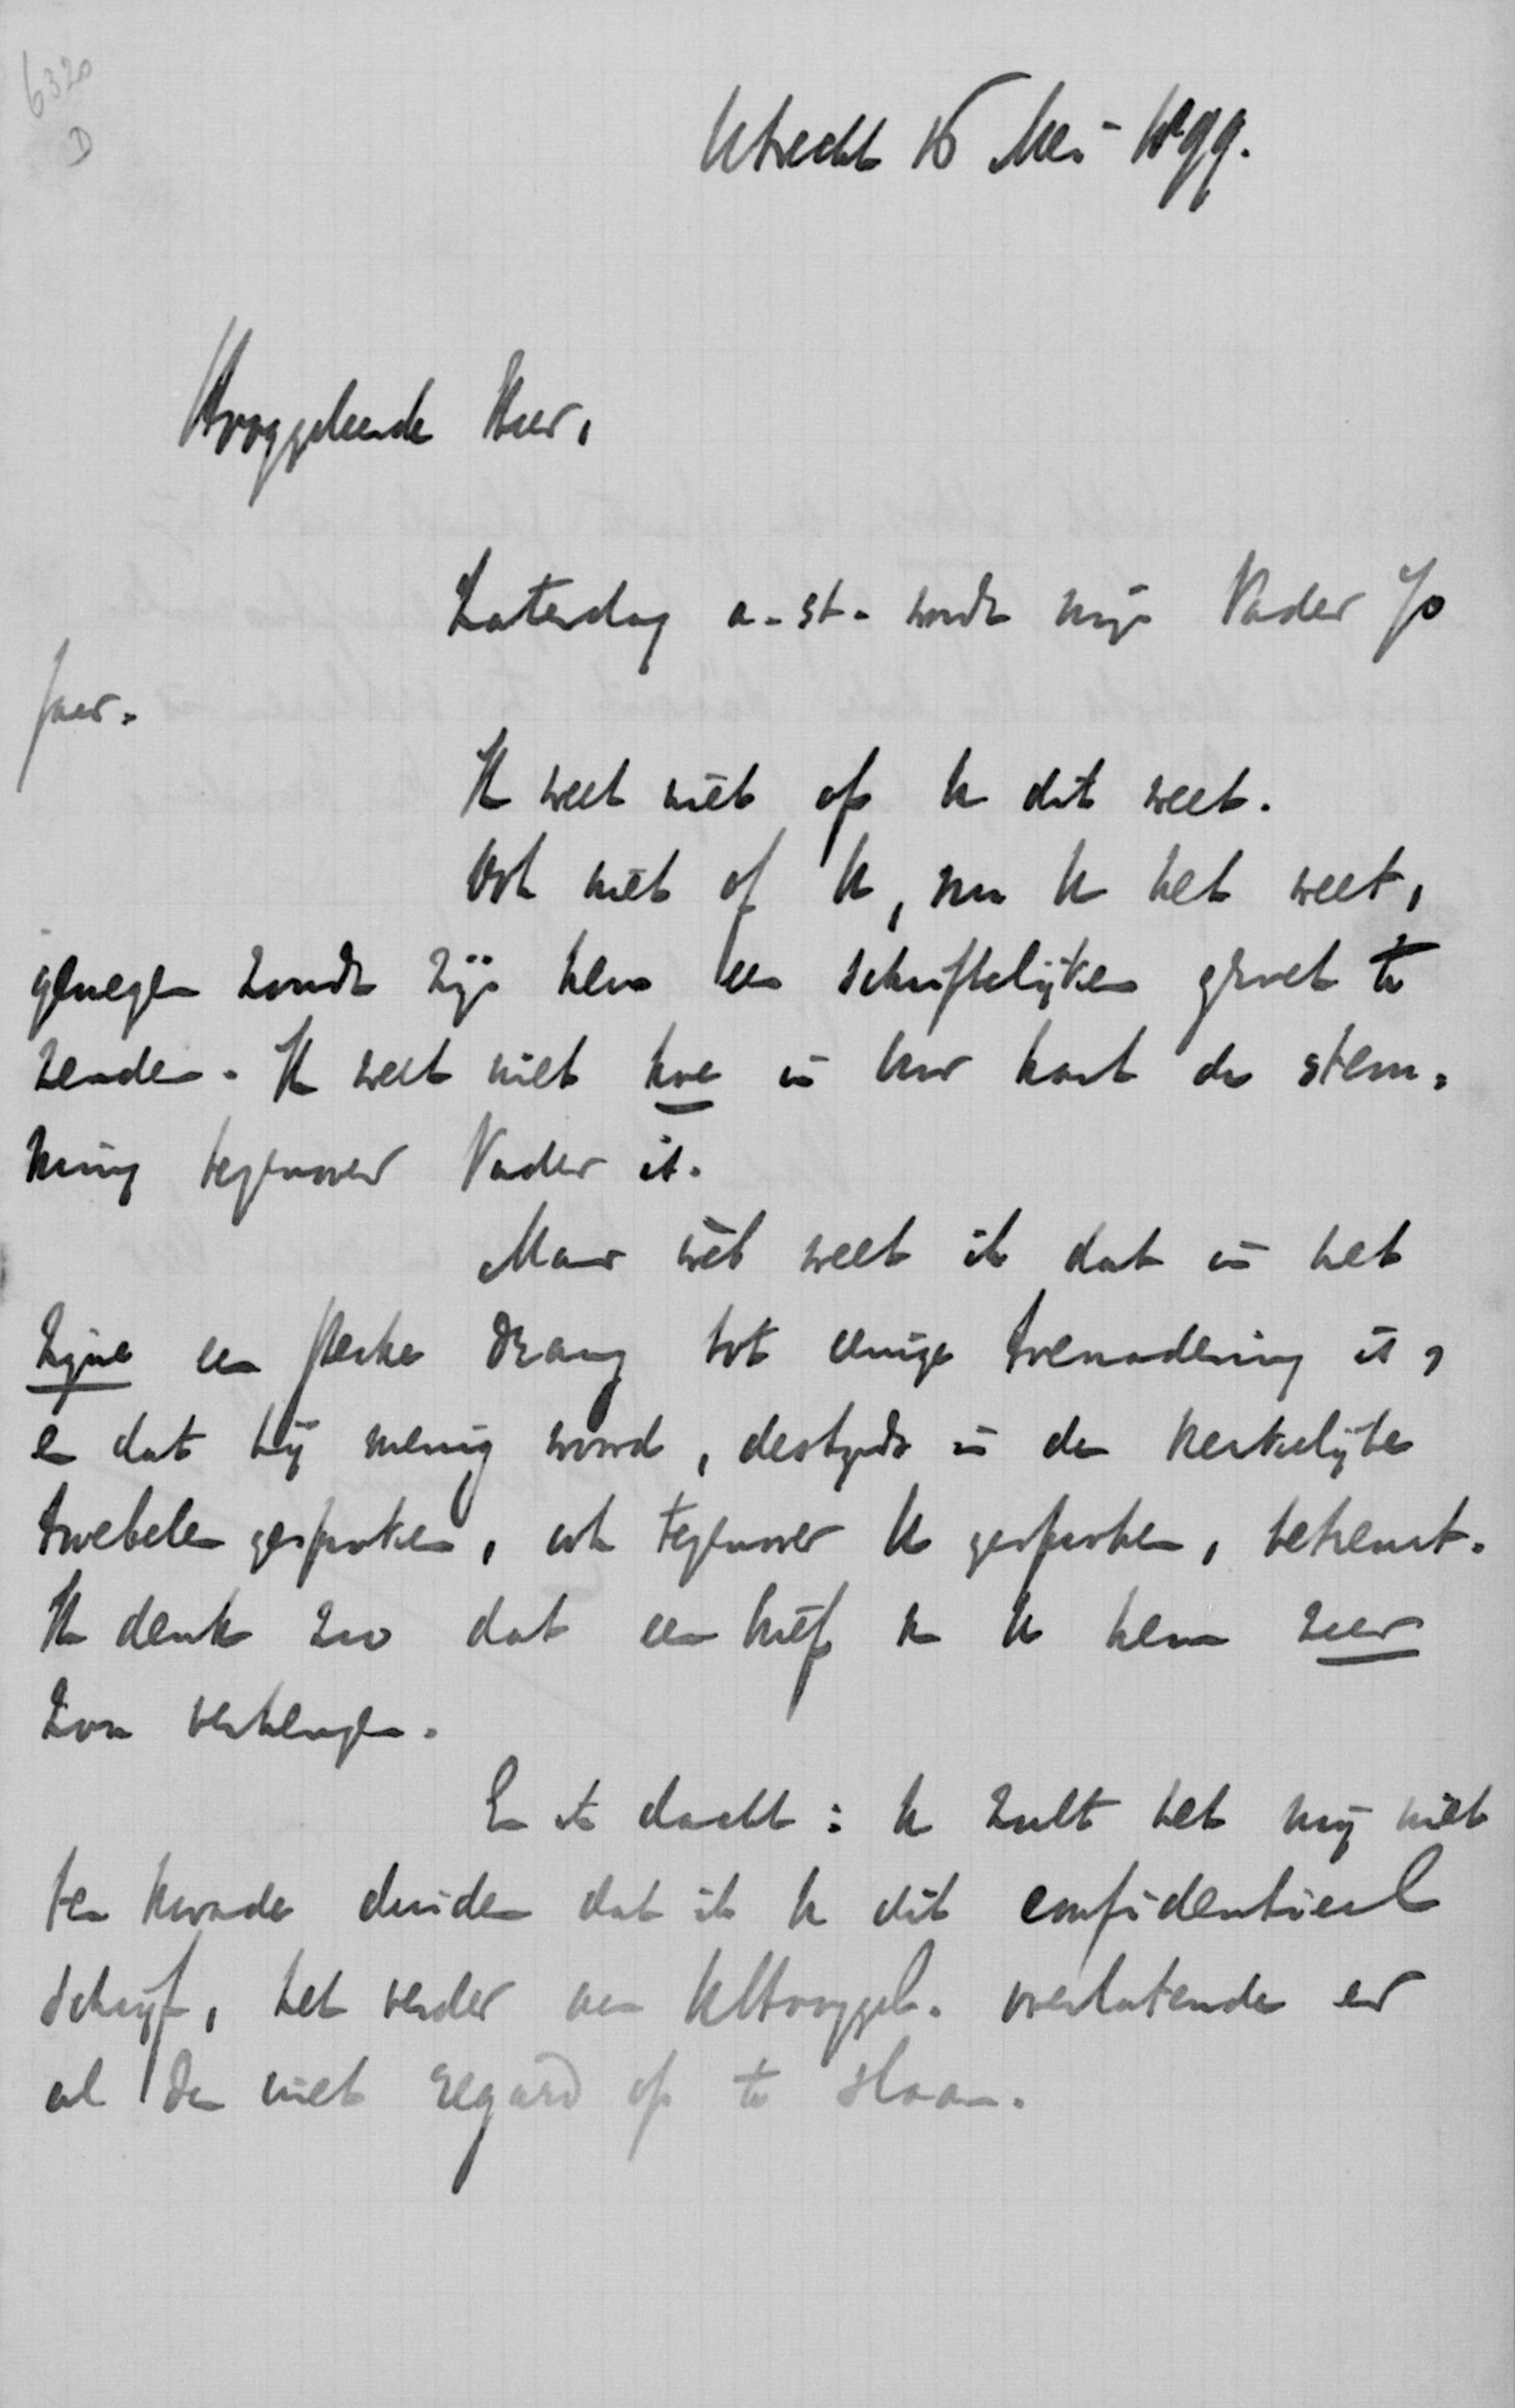 6320
D
Utrecht 16 Mei - 1899.
Hooggeleerde Heer,
Zaterdag a.st. wordt mijn Vader 70
jaar.
Ik weet niet of U dit weet.
Ook niet of U, nu U het weet,
genegen zoudt zijn hem een schriftelijken groet te
zenden. Ik weet niet hoe in Uw hart de stem=
ming tegenover Vader is.
Maar wèl weet ik dat in het
zijne een sterke drang tot eenige toenadering is,
en dat hij menig woord, destijds in den kerkelijken
twebelen gesproken, ook tegenover U gesproken, betreurt.
Ik denk zoo dat een brief van U hem zeer
zou verheugen.
En ik dacht: U zult het mij niet
ten kwade duiden dat ik U dit confidentieel
schrijf, het verder aan UHooggel. overlatende er
al dan niet regard op te slaan.